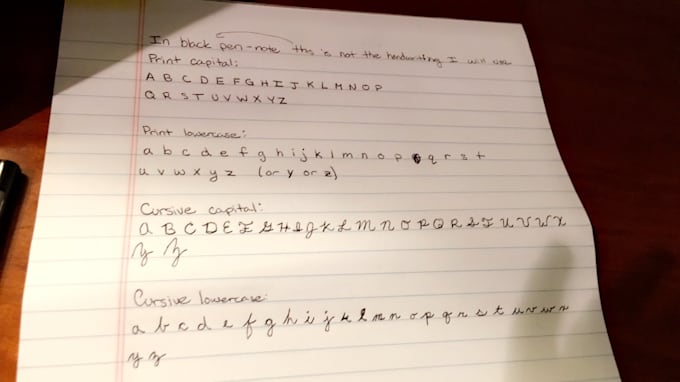 In black pen - note this is not the handwriting I will use
Print capital:
A B C D E F G H I J K L M N O P
Q R S T U V W X Y Z
Print lowercase:
a b c d e f g h i j k l m n o p q r s t
u v w x y z (or y or z)
Cursive capital:
A B C D E F G H I J K L M N O P Q R S T U V W X
Y Z
Cursive lowercase:
a b c d e f g h i j k l m n o p q r s t u v w x
y z